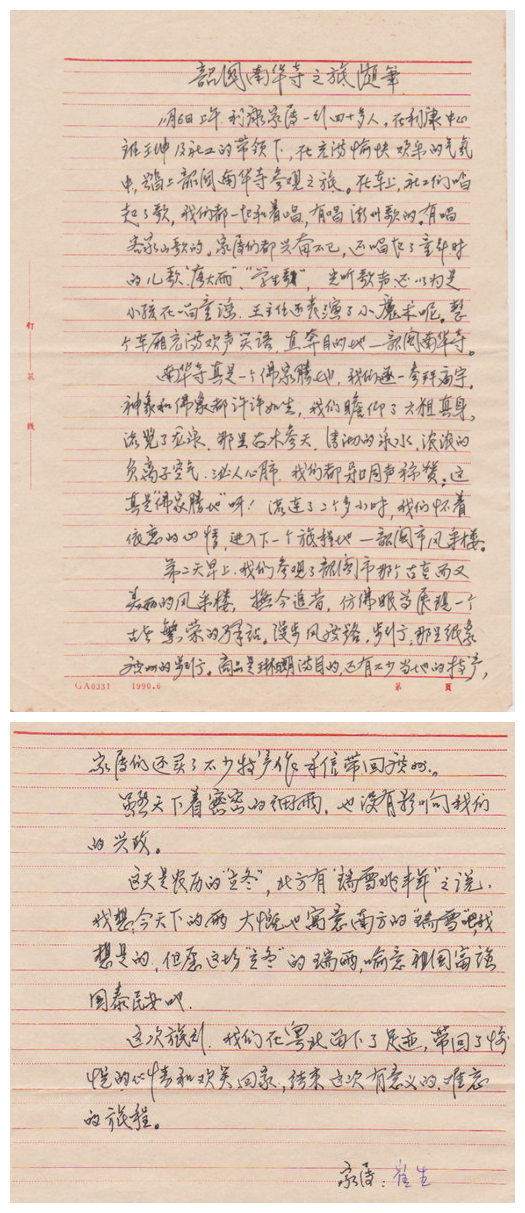 韶関南华寺之旅随笔
11月6日上午利康家属一行四十多人，在利康中心
在充满愉快欢乐的气氛
中，踏上韶関南华寺参观之旅。在车上，社工们唱
起了歌，我们都一起和着唱，有唱潮州歌的，有唱
客家山歌的。家属们都兴奋不已，还唱起了童年时
的儿歌"落大雨"、"学生歌"，光听歌声还以为是
小孩在唱童谣。王主任还表演了小魔术呢。整
个车厢充满欢声笑语，直奔目的地—韶関南华寺。
南华寺真是一个佛家胜地，我们逐一参拜庙宇，
神象和佛象都许许如生，我们瞻仰了六祖真身，
游览了 那里古木参天，清沏的泉水，浓浓的
负离子空气，沁人心肺，我们都异口同声称赞。这
真是"佛家胜地"呀！流连了2个多小时，我们怀着
依恋的心情，进入下一个旅程地—韶関市风采楼。
第二天早上，我们参观了韶関市那个古老而又
美丽的风采楼，抚今追昔，仿佛眼前展现一个
古老繁荣的驿站。漫步风 路，步行 那里
的步行。商品是琳瑯满目的，还有不少当地的特产，
GA0331 1990.6 第 页
订 装 线
家属们还买了不少特产作手信带回
虽然天下着密密的细雨，也没有影响向我们
的兴致。
这天是农历的"立冬"，北方有"瑞雪兆丰年"之说，
我想，今天下的雨大慨也寓意南方的"瑞雪"吧，我
想是的，但愿这场"立冬"的瑞雨，喻意祖国富強
国泰民安吧。
这次旅行，我们在粤北留下了足迹，带回了愉
悅的心情和欢笑回家，结束这次有意义的、难忘
的旅程。
家属：